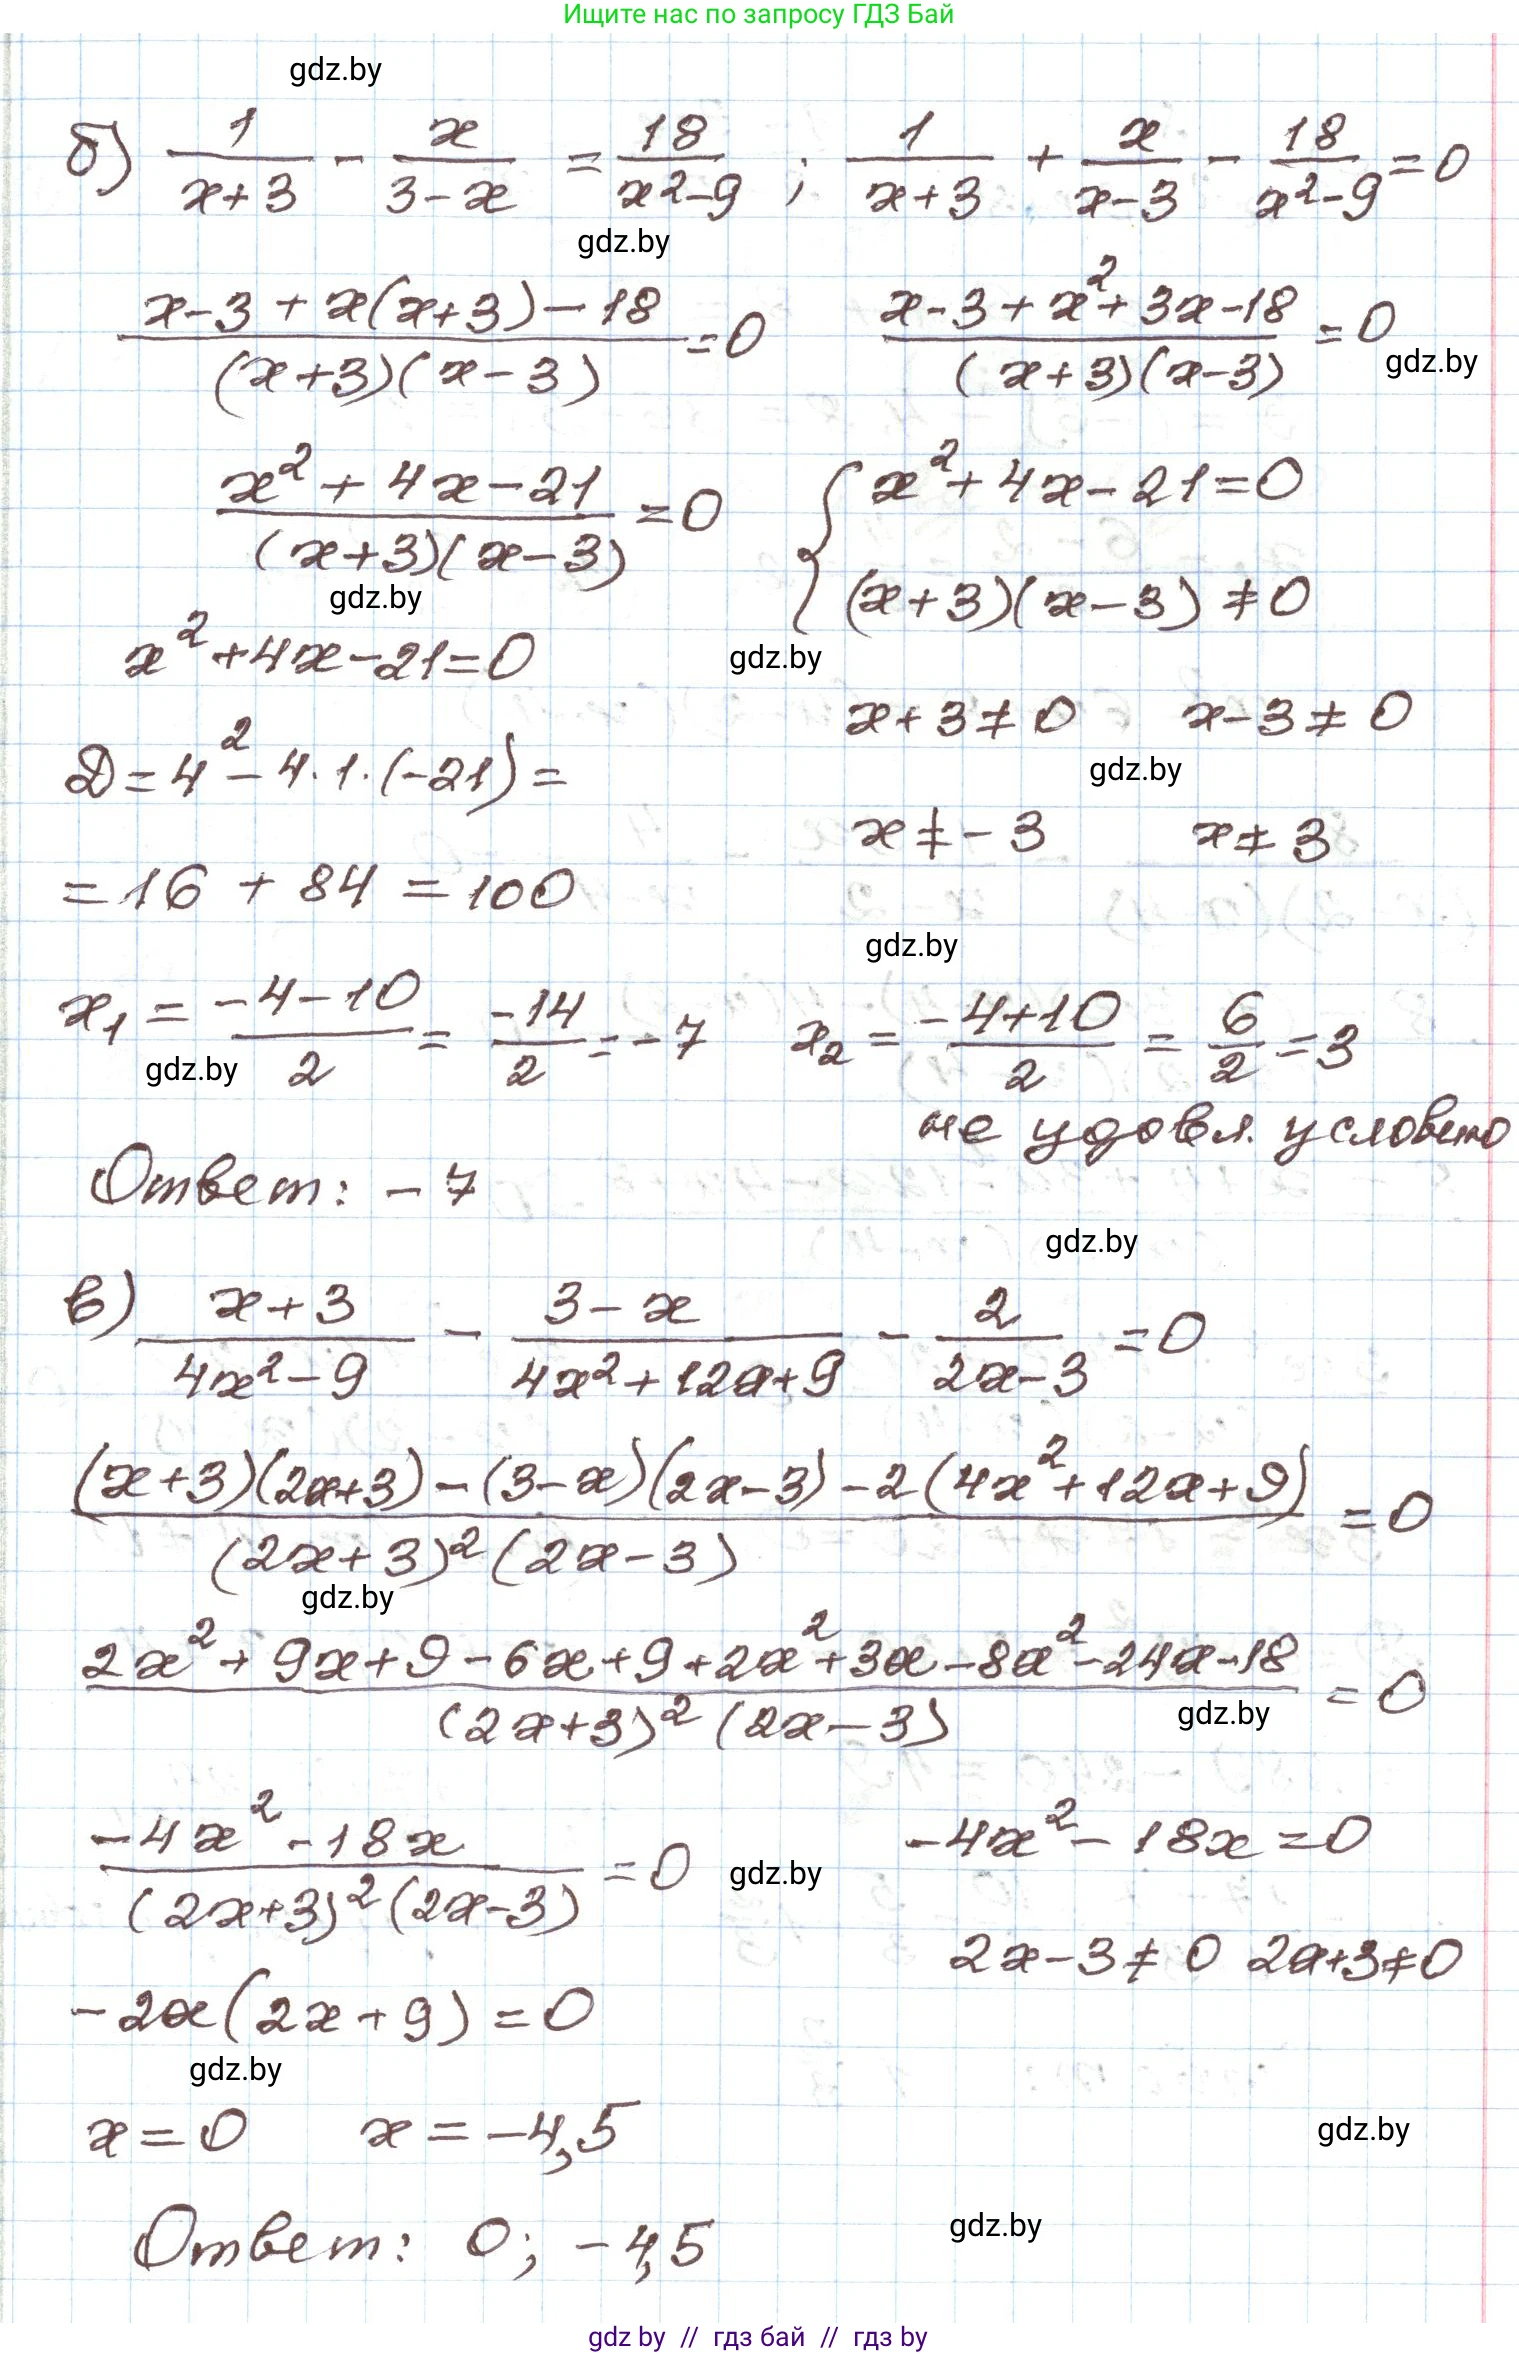 Ищите нас по запросу ГДЗ Бай
gdz.by
б) 1/(x+3) - x/(3-x) = 18/(x²-9) ; 1/(x+3) + x/(x-3) - 18/(x²-9) = 0
gdz.by
(x-3+x(x+3)-18)/((x+3)(x-3)) = 0 (x-3+x²+3x-18)/((x+3)(x-3)) = 0
gdz.by
(x²+4x-21)/((x+3)(x-3)) = 0 { x²+4x-21=0
(x+3)(x-3) ≠ 0
gdz.by
x²+4x-21=0
gdz.by
x+3≠0 x-3≠0
D=4²-4·1·(-21)=
gdz.by
x≠-3 x≠3
=16+84=100
gdz.by
x₁ = (-4-10)/2 = -14/2 = -7 x₂ = (-4+10)/2 = 6/2 = 3
gdz.by
не удовл. условию
Ответ: -7
gdz.by
в) (x+3)/(4x²-9) - (3-x)/(4x²+12x+9) - 2/(2x-3) = 0
((x+3)(2x+3)-(3-x)(2x-3)-2(4x²+12x+9))/((2x+3)²(2x-3)) = 0
gdz.by
(2x²+9x+9-6x+9+2x²+3x-8x²-24x-18)/((2x+3)²(2x-3)) = 0
gdz.by
(-4x²-18x)/((2x+3)²(2x-3)) = 0 -4x²-18x=0
gdz.by
2x-3≠0 2x+3≠0
-2x(2x+9)=0
gdz.by
x=0 x=-4,5
gdz.by
Ответ: 0; -4,5
gdz.by
gdz by // гдз бай // гдз by